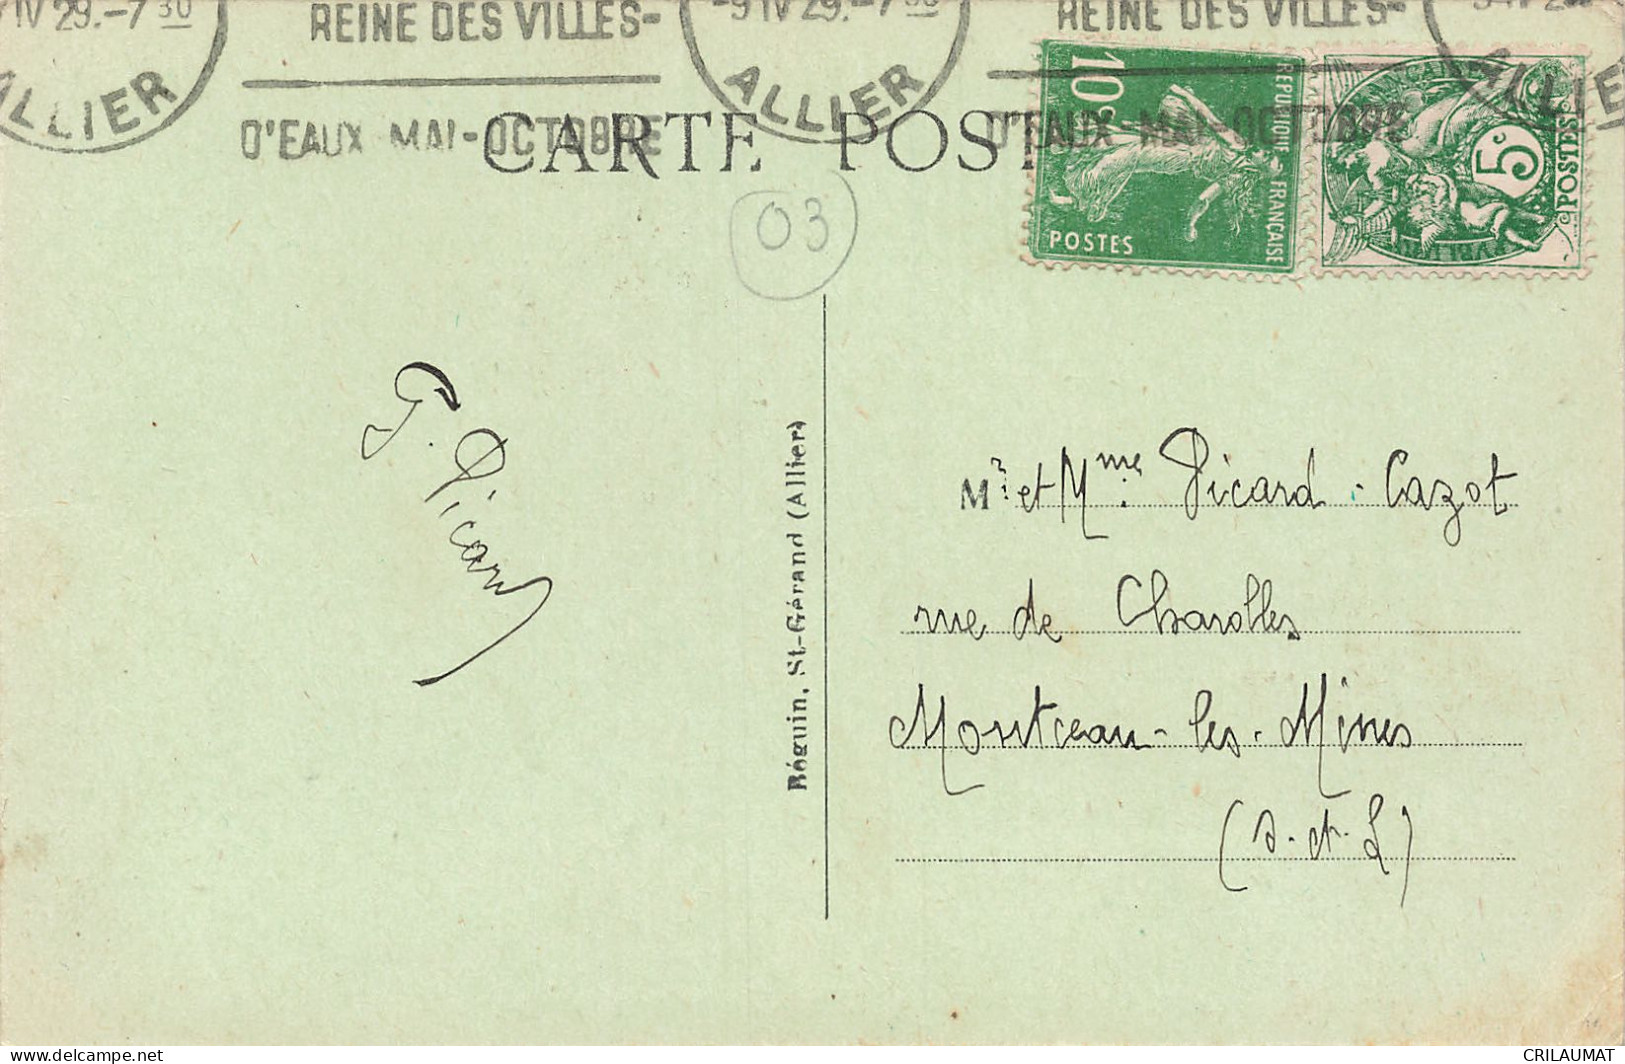 IV 29.-7 30
ALLIER
REINE DES VILLES-
D'EAUX MAI-OCTOBRE
-9 IV 29.-7 30
ALLIER
REINE DES VILLES-
D'EAUX MAI-OCTOBRE
ALLIE
CARTE POST
10c
REPUBLIQUE FRANÇAISE
POSTES
5c
POSTES
03
G. Picard
Béguin, St-Gérand (Allier)
Mr et Mme Picard-Cazot
rue de Charolles
Montceau-les-Mines
(S.-et-L)
https://www.delcampe.net
CRILAUMAT